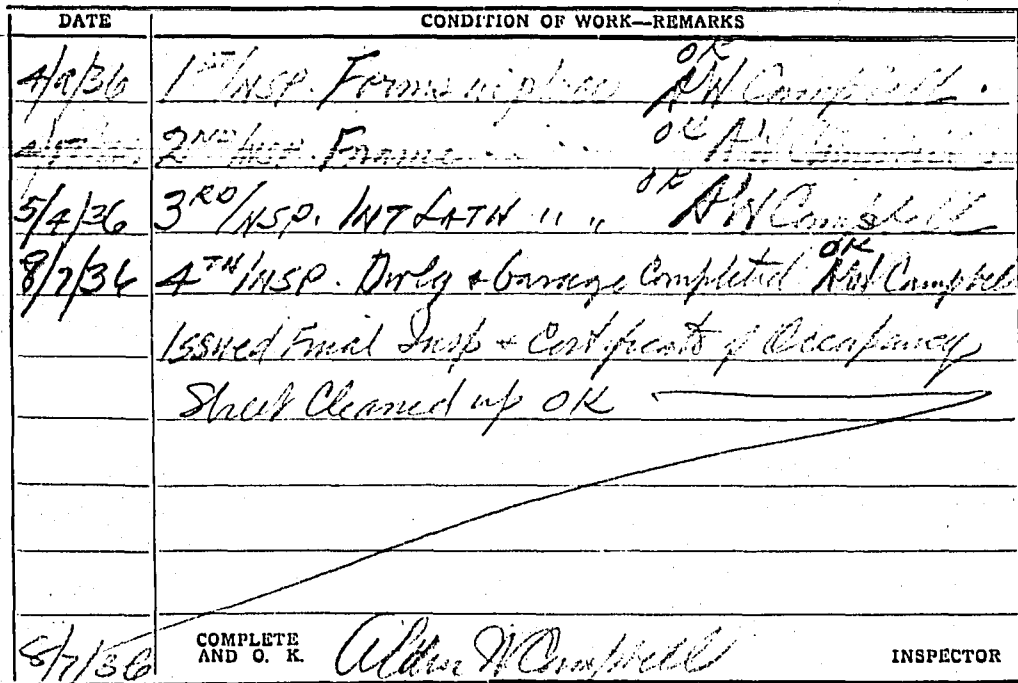 DATE CONDITION OF WORK—REMARKS
4/9/36 1ST INSP. Forms in place OK AW Campbell.
2ND INSP. Frame OK AW
5/4/36 3RD INSP. INT LATH " " OK AW Campbell
8/7/36 4TH INSP. Dwlg + Garage Completed OK AW Campbell
Issued Final Insp + Certificate of Occupancy
Street Cleaned up OK
8/7/36 COMPLETE AND O. K. Alden W Campbell INSPECTOR